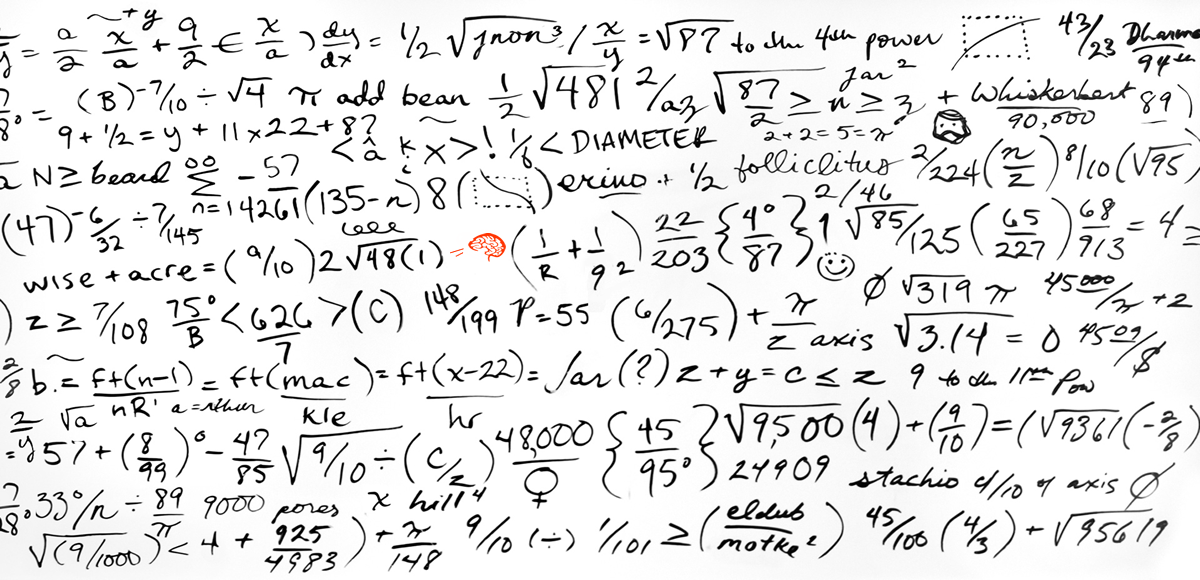 y = a/2 x/a + 9/2 ∈ x/a ) dy/dx = 1/2 √ jnon³ / x/y = √87 to the 4th power 43/23 Dharma 94th
(B)-7/10 ÷ √4 π add bean 1/2 √481 2/az √87/2 ≥ n ≥ z jar² + Whiskerbert 89)
90,000
9 + 1/2 = y + 11 x 22 + 8? < â k x > ! 1/6 < DIAMETER 2+2=5=π
N ≥ beard ∑ - 57 n=14261(135-n) 8 ( ) erino + 1/2 folliclitus 2/224 (n/z) 8/10 (√95)
(47)-6/32 ÷ 7/145 22/203 {4°/87} 1 2/46 √85/125 (65/227) 68/913 = 4 =
wise + acre = (9/10) 2 √48(1) = (1/R + 1/9 2
) z ≥ 7/108 75°/B < 626/7 > (C) 148/199 P=55 (6/275) + π/z axis Ø √319 π 45000/π + 2
√3.14 = 0 4509/$
2/8 b. = ft(n-1)/nR' = ft(mac)/kle = ft(x-22)/hr = √ar(?) z + y = c ≤ z 9 to the 11th Pow
2/y √a a = other
= 57 + (8/99)° - 47/85 √9/10 ÷ (c/z) 48,000/♀ {45/95°} √9,500 (4) + (9/10) = (√9361 (-2/8)
24909 stachio 4/10 of axis Ø
7/28 .33°/n ÷ 89/π 9000 pores x hill⁴
√(9/1000) < 4 + 925/4983 ) + π/148 9/10 (÷) 1/101 ≥ (eldub/motke²) 45/100 (4/3) + √95619